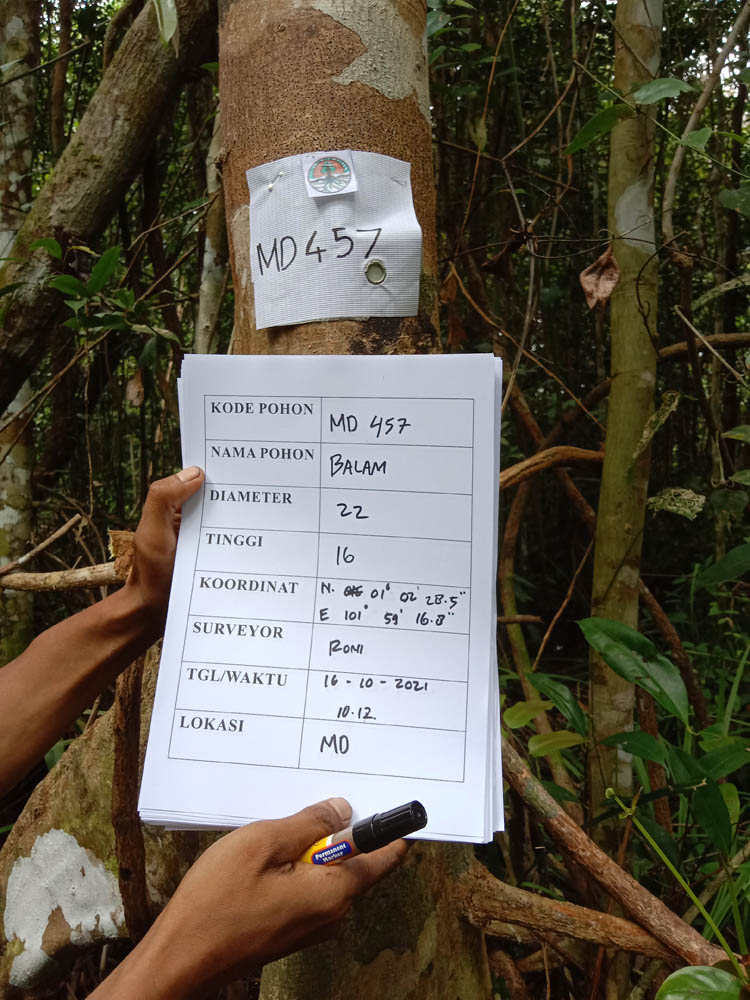 MD 457
KODE POHON MD 457
NAMA POHON BALAM
DIAMETER 22
TINGGI 16
KOORDINAT N. 01° 02' 28.5"
E 101° 59' 16.8"
SURVEYOR RONI
TGL/WAKTU 16 - 10 - 2021
10.12.
LOKASI MD
Permanent
Marker